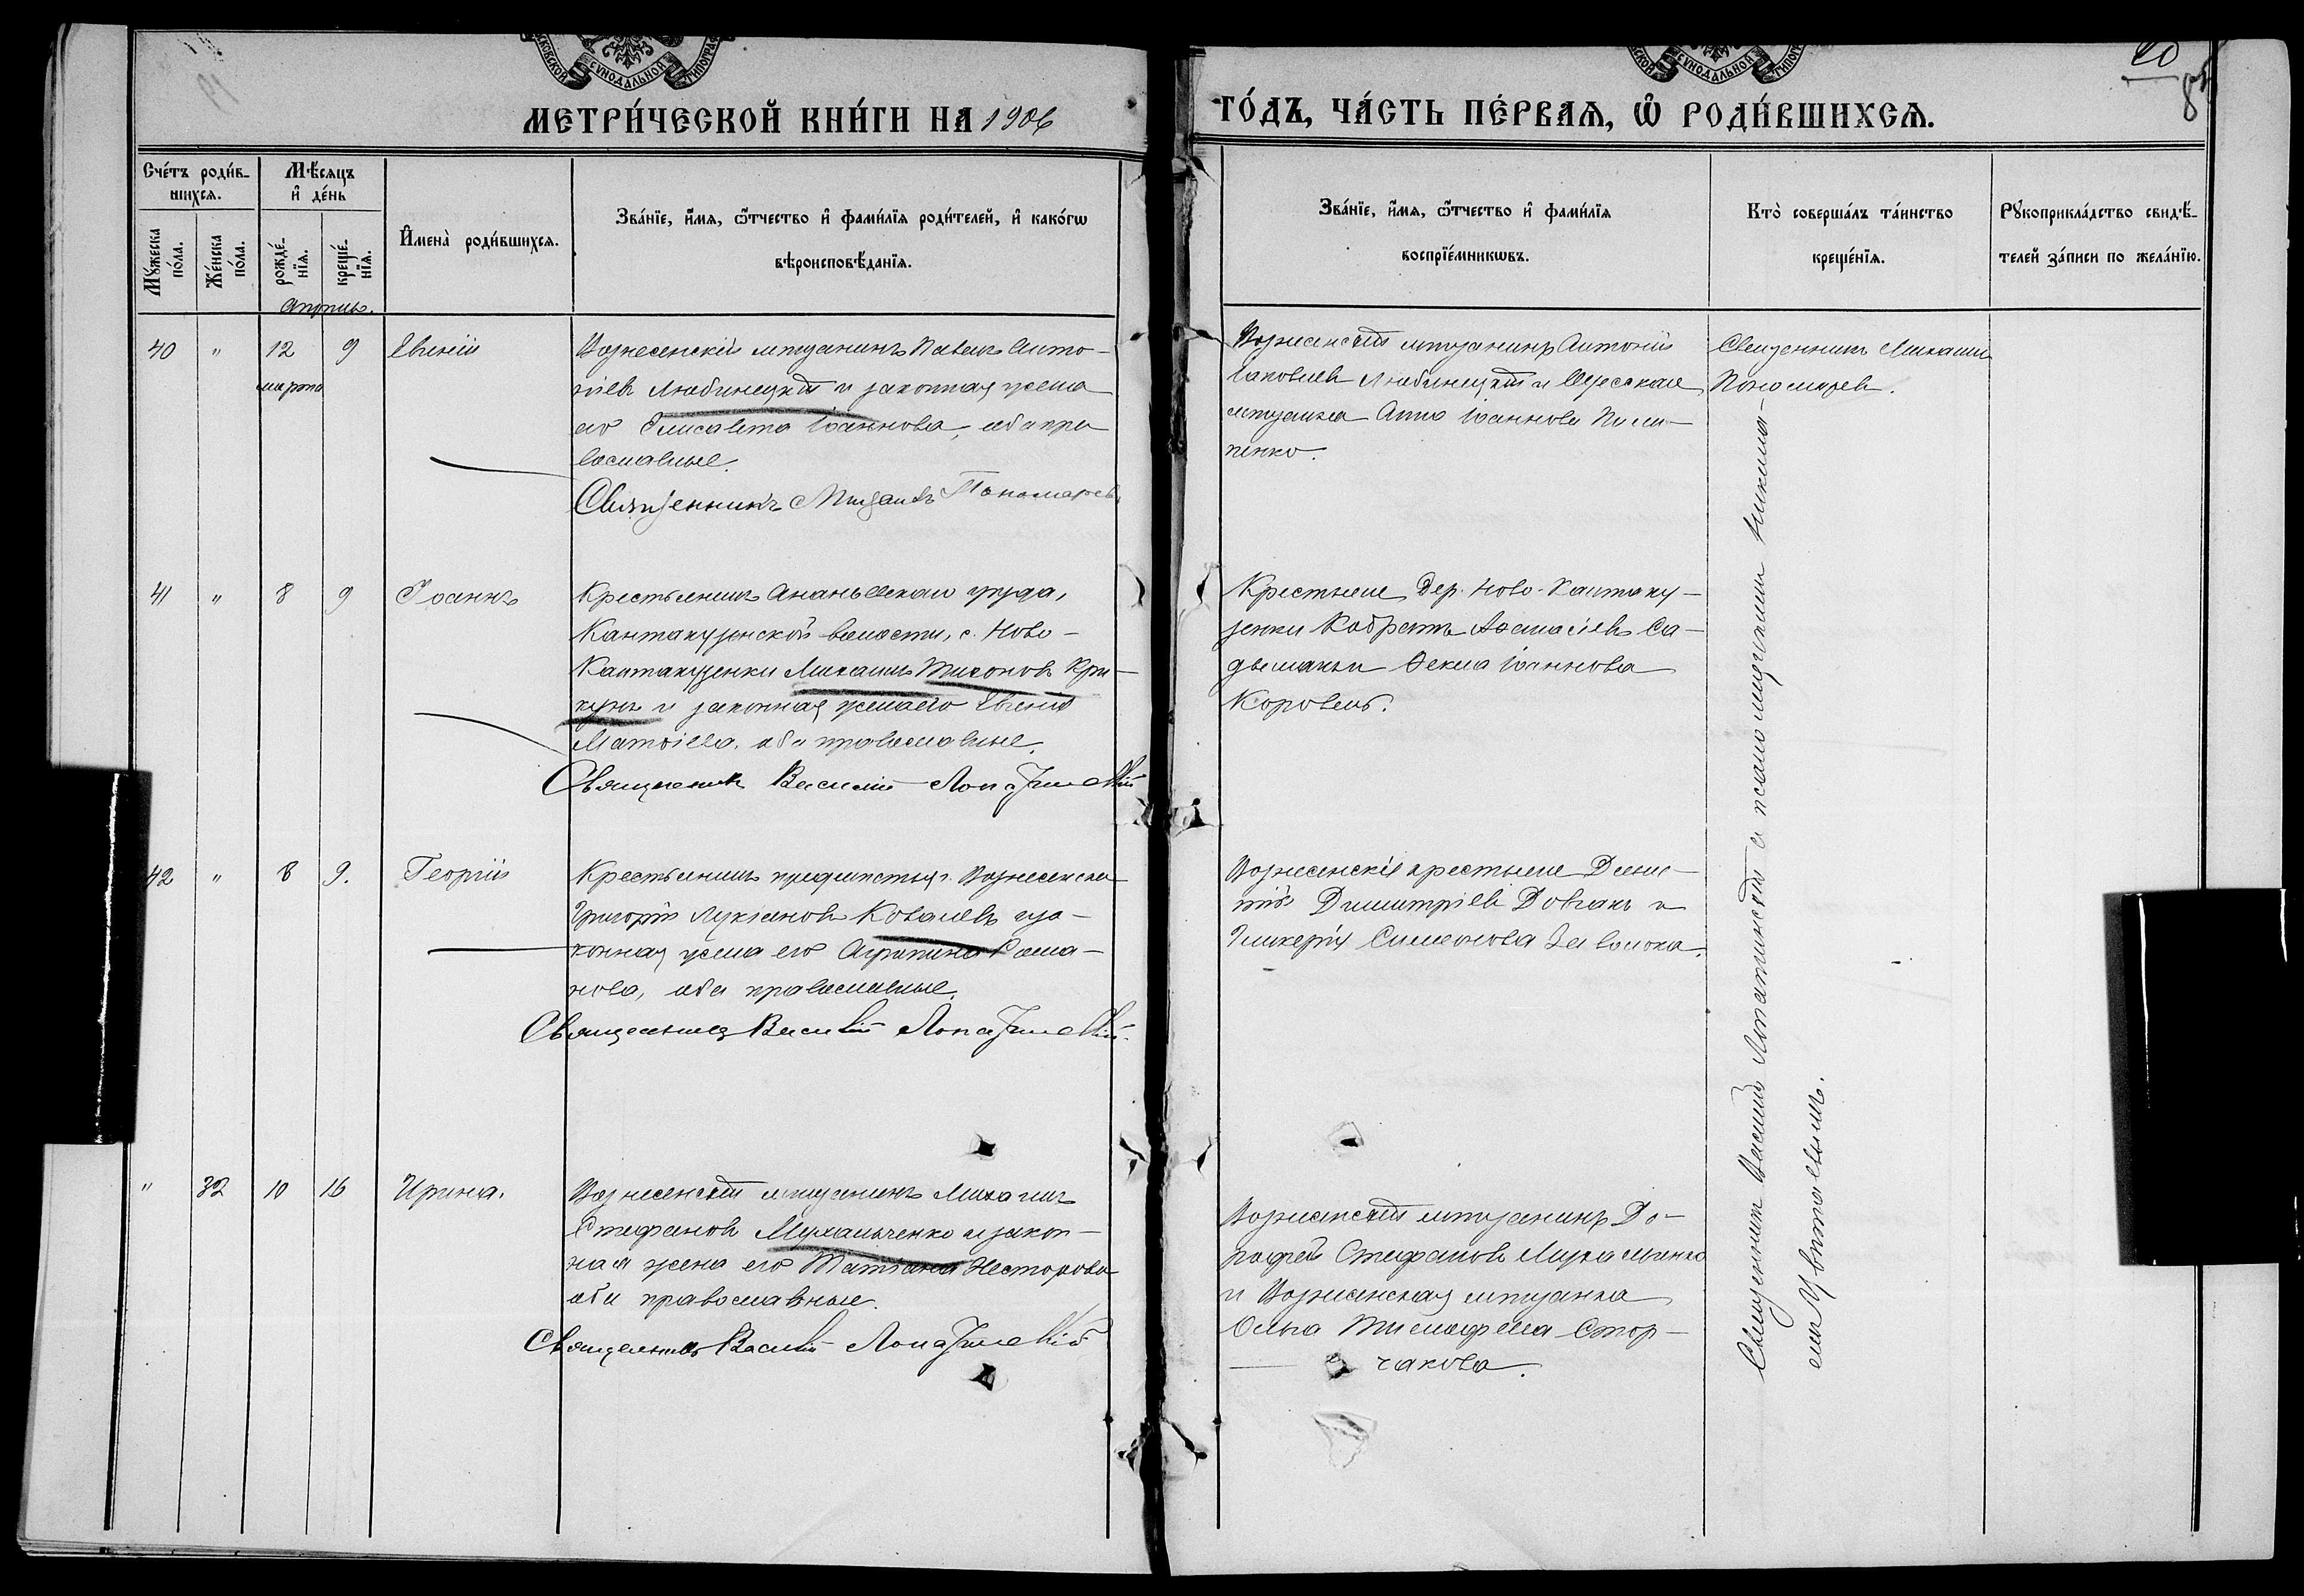 СѴНОДАЛЬНОЙ
СѴНОДАЛЬНОЙ
20
МЕТРИ́ЧЕСКОЙ КНИ́ГИ НА 1906
ГО́ДЪ, ЧА́СТЬ ПЕ́РВАЯ, Ѡ҆ РОДИ́ВШИХСЯ.
Сче́тъ роди́в-
шихся.
Му́жеска по́ла.
Же́нска по́ла.
Мѣ́сяцъ
и҆ де́нь
рожде́-
нїя.
креще́-
нїя.
И҆мена̀ роди́вшихся.
Зва́нїе, и҆́мя, ѻ҆́тчество и҆ фами́лїя роди́телей, и҆ како́гѡ
вѣроисповѣ́данїя.
Зва́нїе, и҆́мя, ѻ҆́тчество и҆ фами́лїя
воспрїе́мникѡвъ.
Кто̀ соверша́лъ та́инство
креще́нїя.
Рꙋкоприкла́дство свидѣ́-
телей за́писи по жела́нїю.
Апрѣль.
40 " 12 9 Евгеній
марта
Вознесенскій мѣщанинъ Павелъ Анто-
ніевъ Любинецкій и законная жена
его Елисавета Іоаннова, оба пра
вославные.
Священникъ Михаилъ Пономаревъ
Вознесенскій мѣщанинъ Антоній
Іаковлевъ Любинецкій и Одесская
мѣщанка Анна Іоаннова Пили-
пенко.
Священникъ Михаилъ
Пономаревъ.
41 " 8 9 Іоаннъ
Крестьянинъ Ананьевскаго уѣзда,
Кантакузенской волости, с. Ново-
Кантакузенки Михаилъ Тихоновъ Кри-
кунъ и законная жена его Евгенія
Матѳіева, оба православные.
Священникъ Василій Лопатинскій
Крестьяне дер. Ново-Кантаку-
зенки Кодратъ Аѳанасіевъ Са-
и Ѳекла Іоаннова
Коровецъ.
42 " 8 9. Георгій
Крестьянинъ предмѣстья г. Вознесенска
Григорій Лукіановъ Ковалевъ и за-
конная жена его Агрипина Рома-
нова, оба православные.
Священникъ Василій Лопатинскій.
Вознесенскіе крестьяне Діони-
сій Димитріевъ Довгань и
Гликерія Симеонова Заволока.
" 32 10 16 Ирина.
Вознесенскій мѣщанинъ Михаилъ
Стефановъ Мухальченко и закон-
ная жена его Татіана Несторова
оба православные.
Священникъ Василій Лопатинскій
Вознесенскій мѣщанинъ До-
рофей Стефановъ Мухальченко
и Вознесенская мѣщанка
Ольга Тимофеева Стор-
чакова.
Священникъ Василій Лопатинскій съ псаломщикомъ